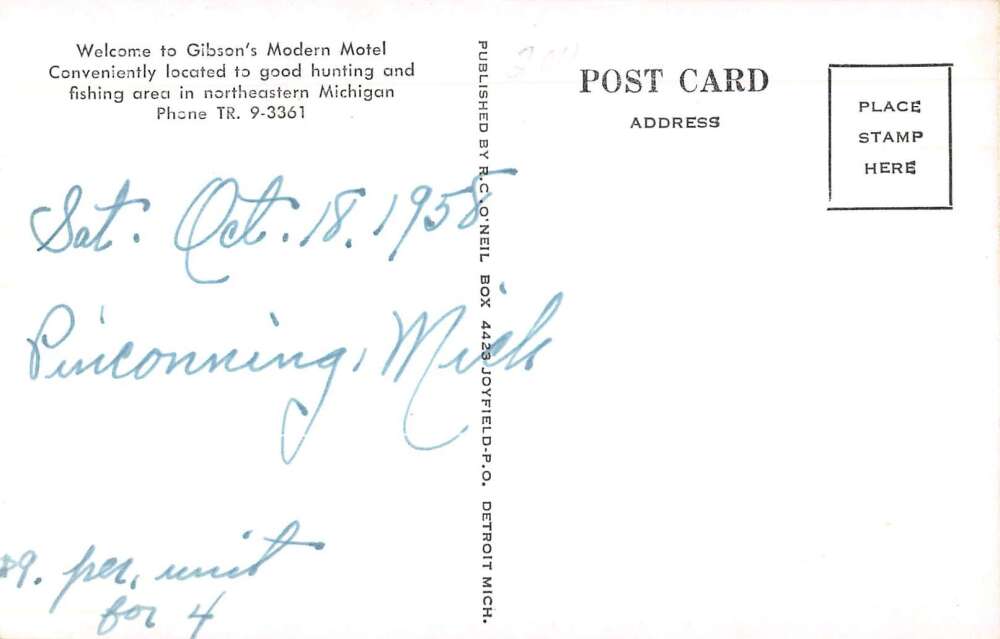 Welcome to Gibson's Modern Motel
Conveniently located to good hunting and
fishing area in northeastern Michigan
Phone TR. 9-3361
Sat. Oct. 18. 1958
Pinconning, Mich
$9. per, unit
for 4
PUBLISHED BY R.C. O'NEIL BOX 4423 JOYFIELD-P.O. DETROIT MICH.
POST CARD
ADDRESS
PLACE
STAMP
HERE